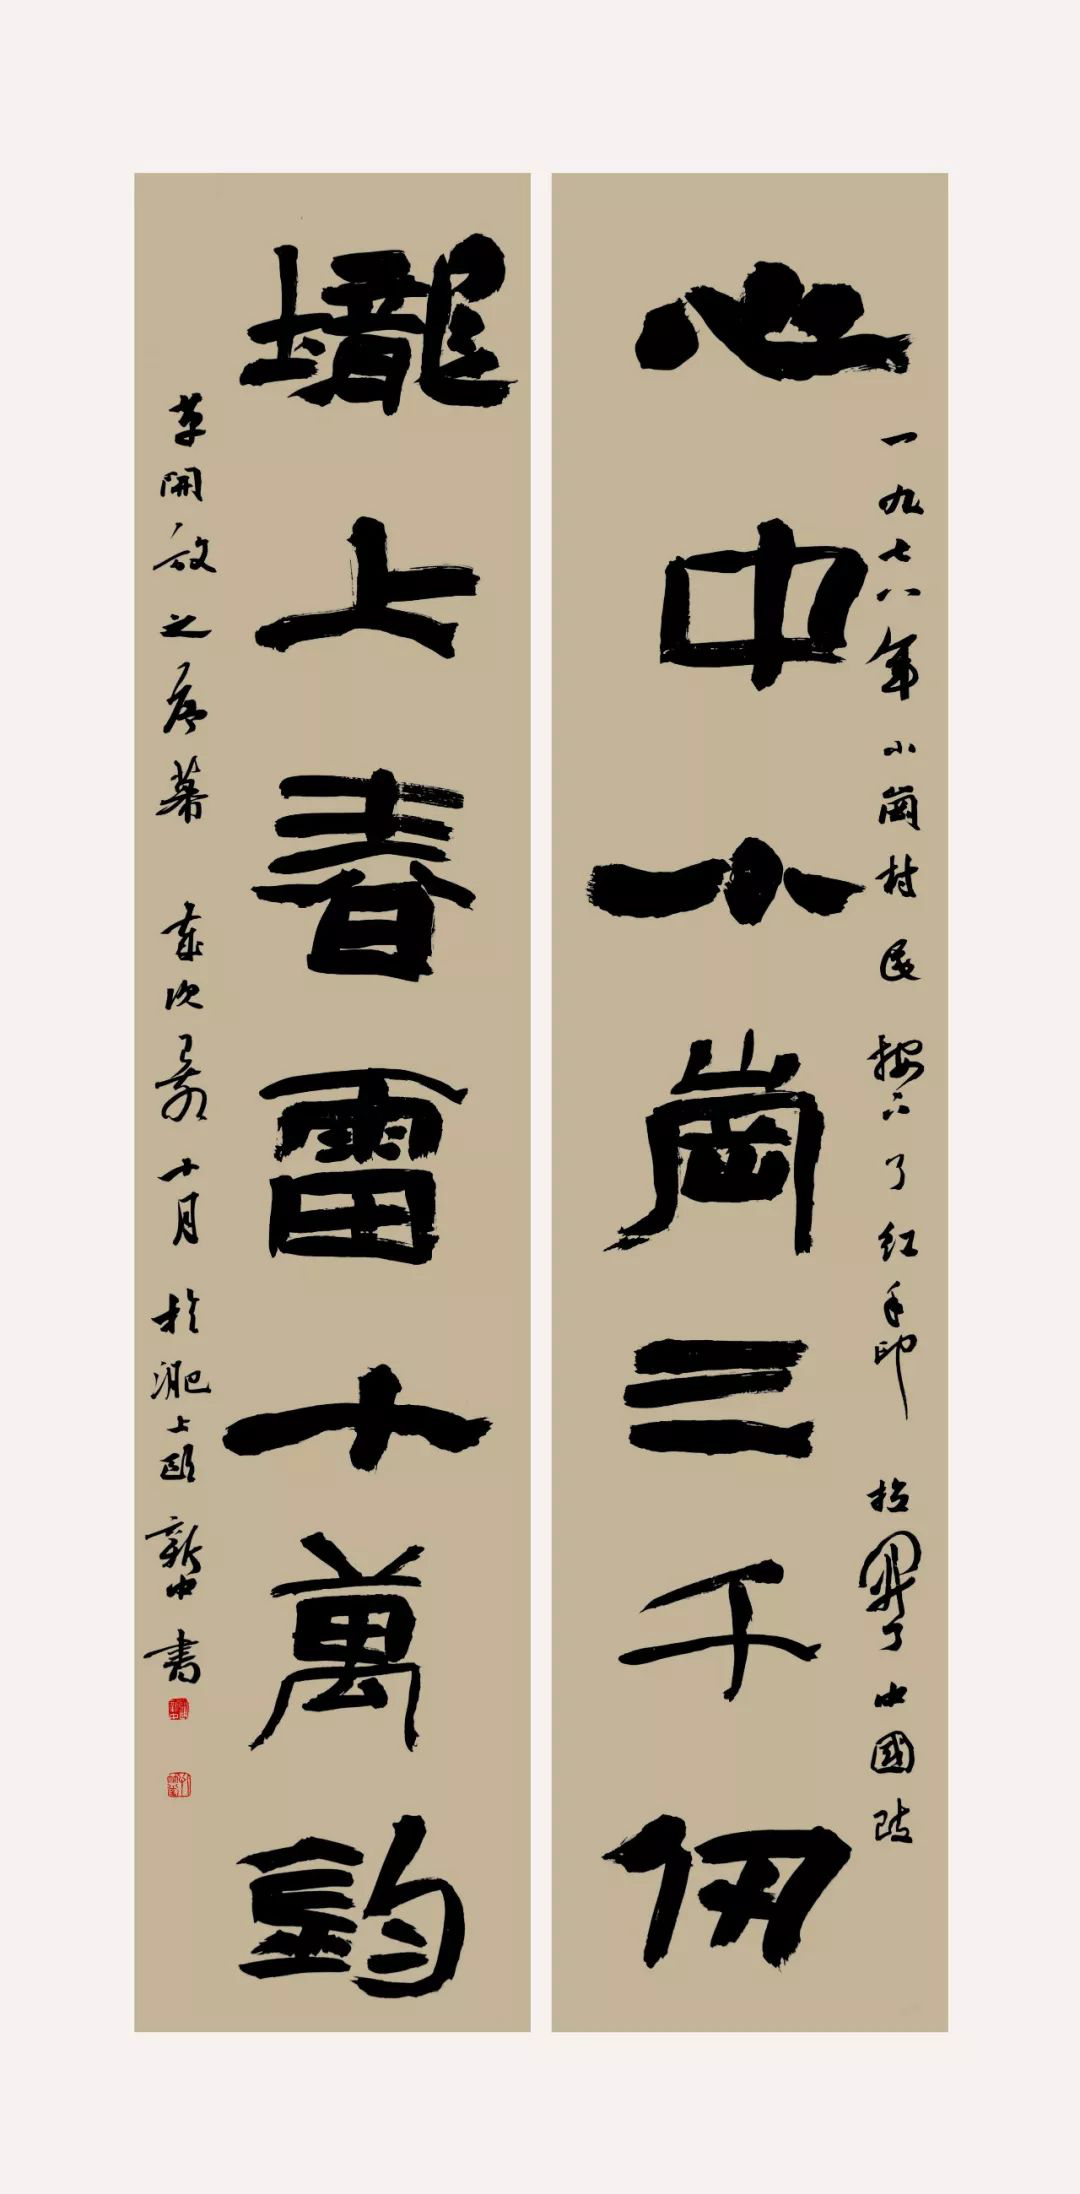 心中小崗三千仞
一九七八年小崗村民按下了红手印拉開了中國改
壠上春雷十萬鈞
革開放之序幕 歲次己亥十月於淝上歐新中書